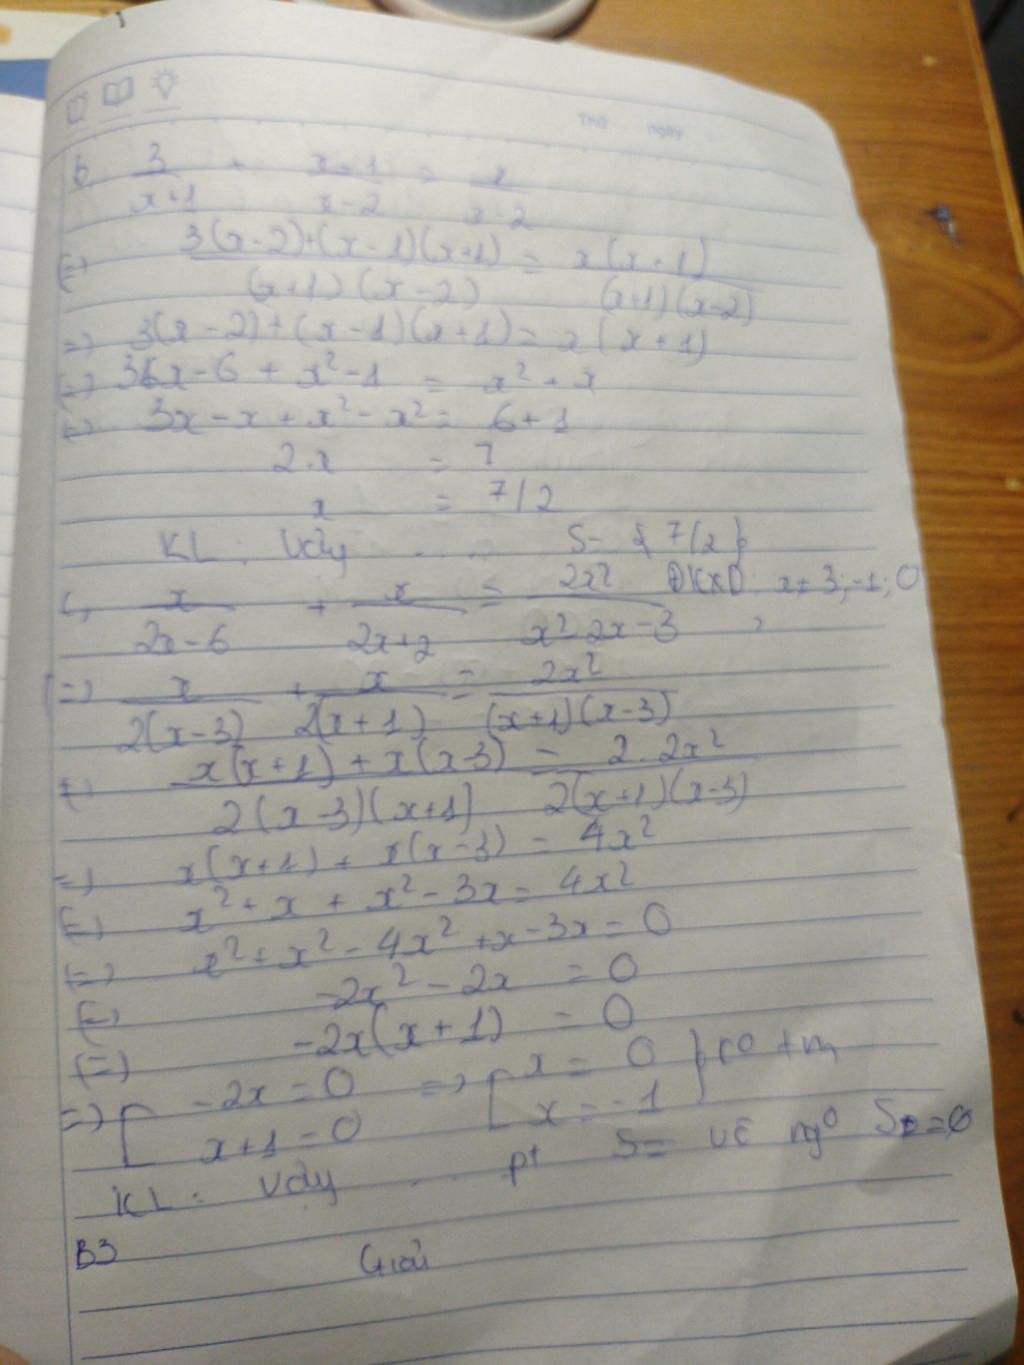 Thứ ngày
b, 3/(x+1) + (x-1)/(x-2) = x/(x-2)
(=) (3(x-2)+(x-1)(x+1))/((x+1)(x-2)) = x(x+1)/((x+1)(x-2))
=) 3(x-2)+(x-1)(x+1) = x(x+1)
(=) 3x-6 + x²-1 = x²+x
(=) 3x-x+x²-x² = 6+1
2x = 7
x = 7/2
KL: Vậy .... S = {7/2}
c, x/(2x-6) + x/(2x+2) = 2x²/(x²-2x-3) ĐKXĐ: x≠3;-1;0
(=) x/(2(x-3)) + x/(2(x+1)) = 2x²/((x+1)(x-3))
(=) (x(x+1)+x(x-3))/(2(x-3)(x+1)) = 2.2x²/(2(x+1)(x-3))
=) x(x+1)+x(x-3) = 4x²
(=) x²+x+x²-3x = 4x²
(=) x²+x²-4x²+x-3x = 0
(=) -2x²-2x = 0
(=) -2x(x+1) = 0
=) [ -2x=0 =) [ x = 0 }
x+1=0 x = -1
KL: Vậy ... pt S=
B3 Giải